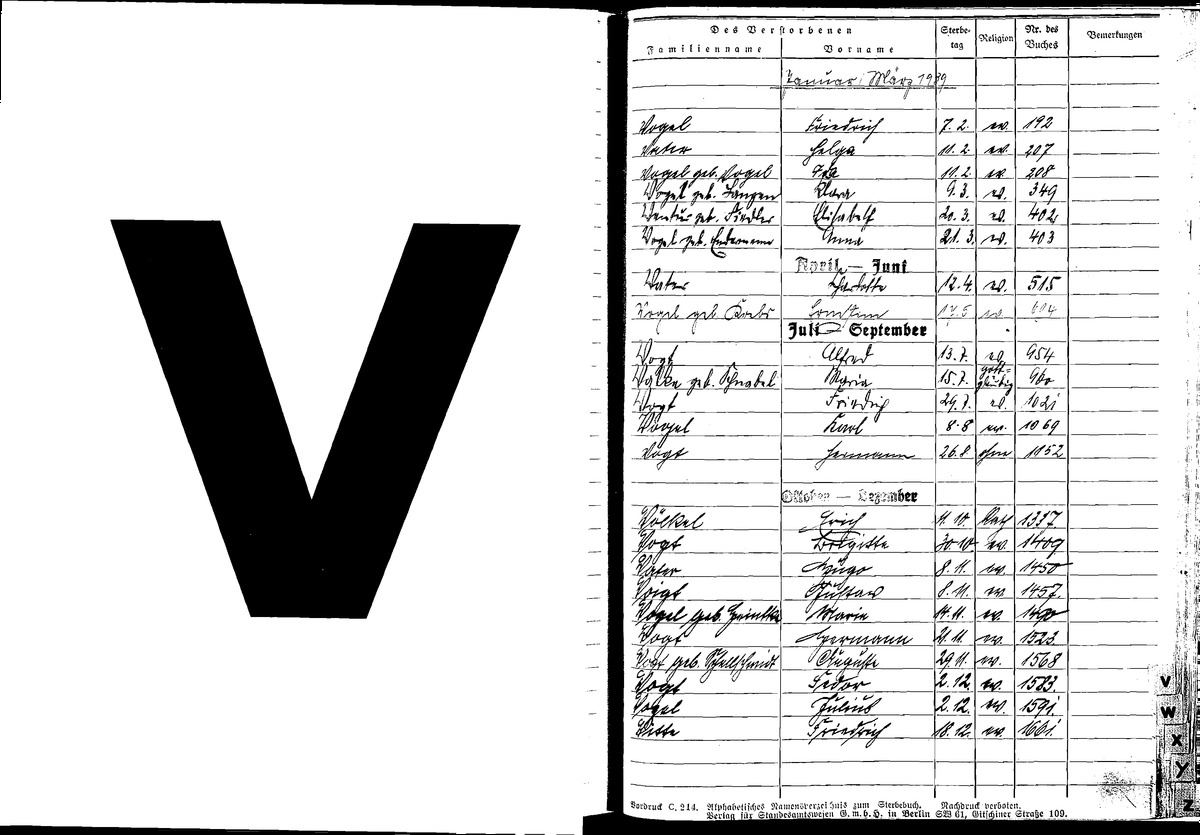 V
Des Verstorbenen
Familienname Vorname Sterbetag Religion Nr. des Buches Bemerkungen
Januar/März 1939
Vogel Friedrich 7. 2. ev. 192
Vater Helga 11. 2. ev. 207
Vogel geb. Vogel Ida 11. 2. ev. 208
Vogel geb. Langen Klara 9. 3. ev. 349
Ventur geb. Fiedler Elisabeth 20. 3. ev. 402
Vogel geb. Andermann Anna 21. 3. ev. 403
April — Juni
Vater Charlotte 12. 4. ev. 515
Vogel geb. Krebs 17. 5 ev. 604
Juli — September
Vogt Alfred 13. 7. ev. 954
geb. Schnabel Maria 15. 7. gottgläubig 960
Vogt Friedrich 29. 7. ev. 1021
Vogel Karl 8. 8 ev. 1069
Vogt Hermann 26. 8 ohne 1152
Oktober — Dezember
Völkel Erich 11. 10. Kat 1317.
Vogt Brigitte 30. 10 ev. 1409
Vater Hugo 8. 11. ev. 1450
Voigt Gustav 8. 11. ev. 1457.
Vogel geb. Marie 14. 11. ev. 1490
Vogt Hermann 21. 11. ev. 1523.
Vogt geb. Schellschmidt Auguste 29. 11. ev. 1568
Vogt Fedor 2. 12. ev. 1583.
Vogel Julius 2. 12. ev. 1591.
Vitte Friedrich 18. 12. ev. 1661.
Vordruck C. 214. Alphabetisches Namensverzeichnis zum Sterbebuch. Nachdruck verboten.
Verlag für Standesamtswesen G. m. b. H. in Berlin SW 61, Gitschiner Straße 109.
V
W
X
Y
Z